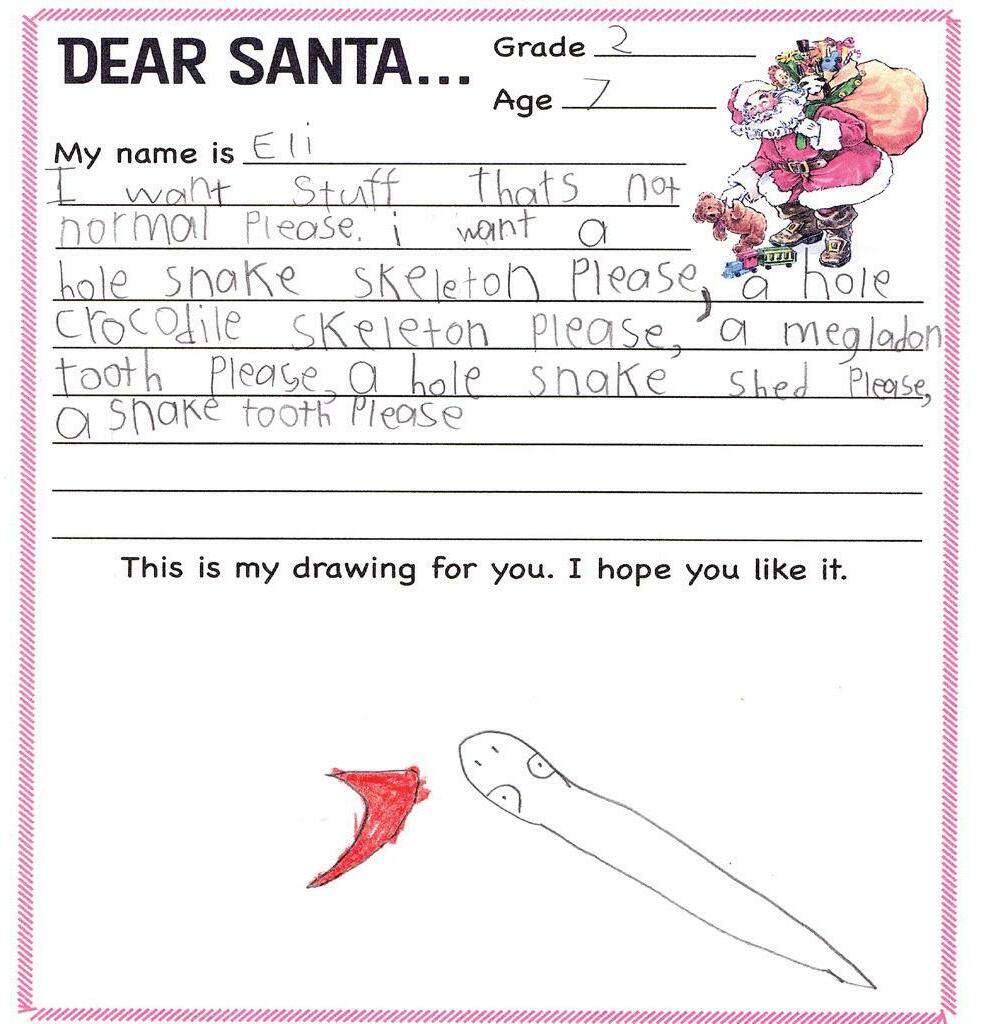 DEAR SANTA...
Grade 2
Age 7
My name is Eli
I want Stuff thats not
normal Please. i want a
hole snake skeleton Please, a hole
crocodile skeleton please, a megladon
tooth Please, a hole snake shed Please,
a snake tooth Please
This is my drawing for you. I hope you like it.